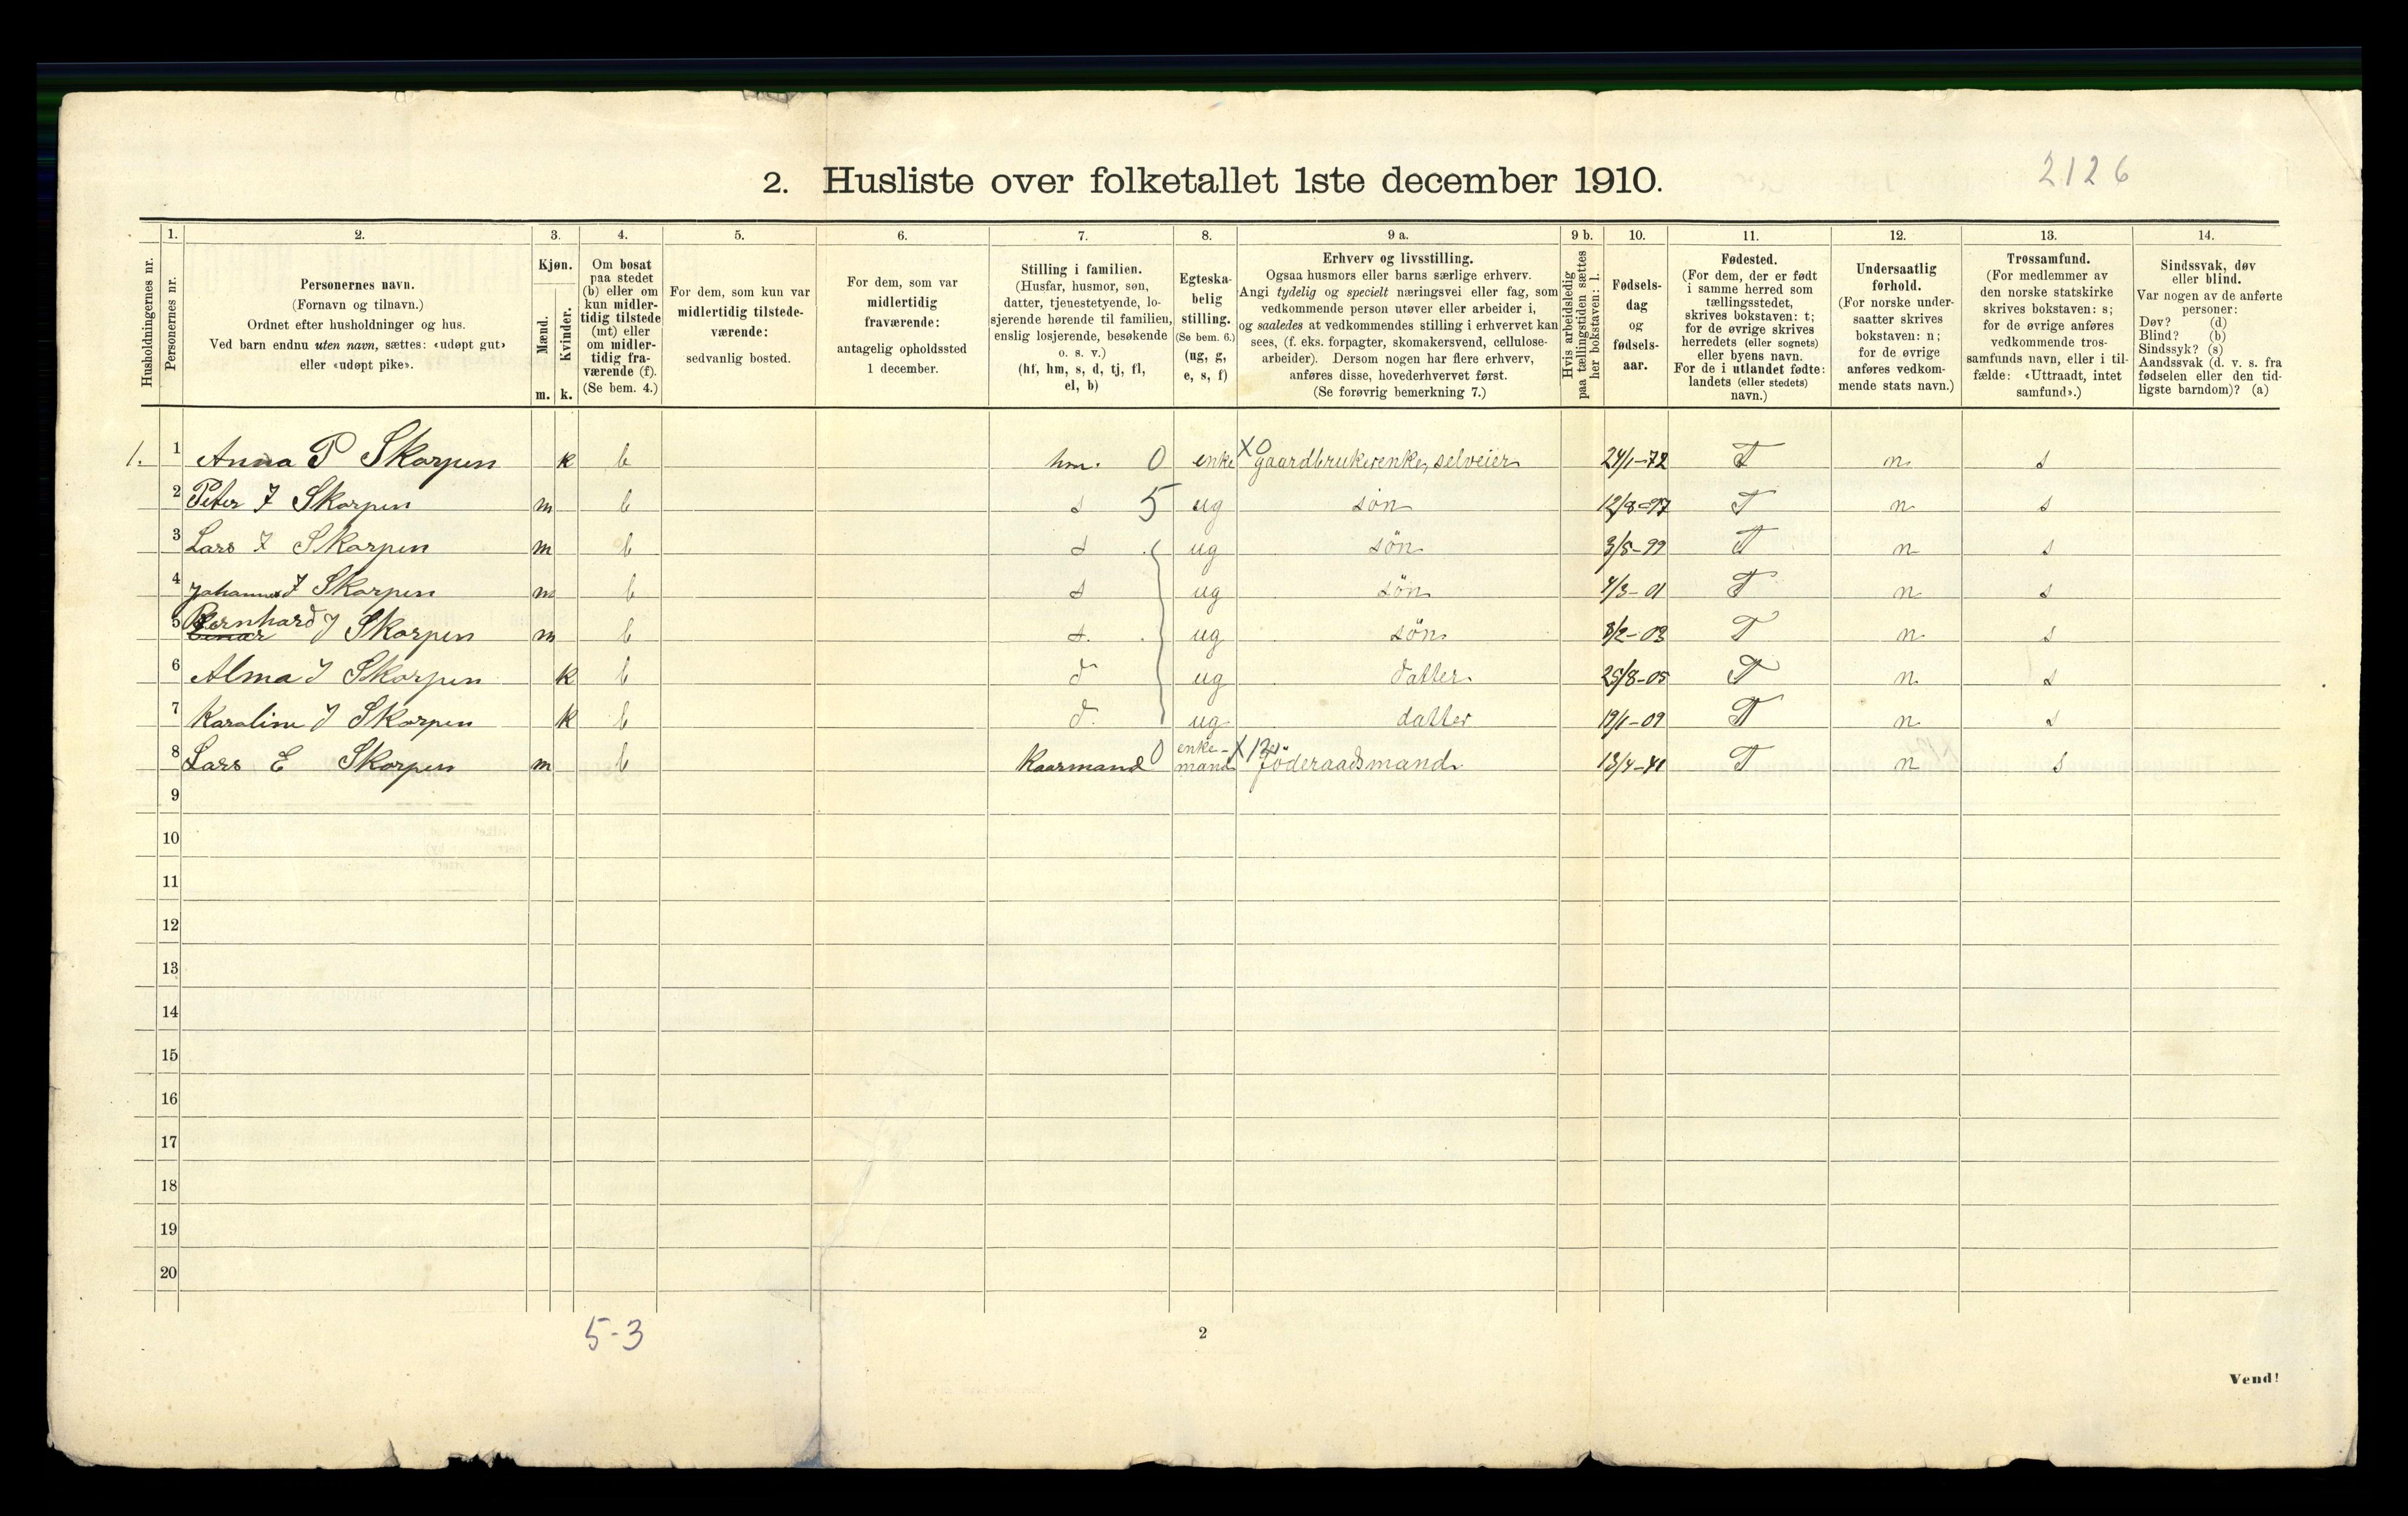 2126
2. Husliste over folketallet 1ste december 1910.
Husholdningernes nr.
1.
Personernes nr.
2.
Personernes navn.
(Fornavn og tilnavn.)
Ordnet efter husholdninger og hus.
Ved barn endnu uten navn, sættes: «udøpt gut»
eller «udøpt pike».
3.
Kjøn.
Mænd.
Kvinder.
m. k.
4.
Om bosat
paa stedet
(b) eller om
kun midler-
tidig tilstede
(mt) eller
om midler-
tidig fra-
værende (f).
(Se bem. 4.)
5.
For dem, som kun var
midlertidig tilstede-
værende:
sedvanlig bosted.
6.
For dem, som var
midlertidig
fraværende:
antagelig opholdssted
1 december.
7.
Stilling i familien.
(Husfar, husmor, søn,
datter, tjenestetyende, lo-
sjerende hørende til familien,
enslig losjerende, besøkende
o. s. v.)
(hf, hm, s, d, tj, fl,
el, b)
8.
Egteska-
belig
stilling.
(Se bem. 6.)
(ug, g,
e, s, f)
9 a.
Erhverv og livsstilling.
Ogsaa husmors eller barns særlige erhverv.
Angi tydelig og specielt næringsvei eller fag, som
vedkommende person utøver eller arbeider i,
og saaledes at vedkommendes stilling i erhvervet kan
sees, (f. eks. forpagter, skomakersvend, cellulose-
arbeider). Dersom nogen har flere erhverv,
anføres disse, hovederhvervet først.
(Se forøvrig bemerkning 7.)
9 b.
Hvis arbeidsledig
paa tællingstiden sættes
her bokstaven: l.
10.
Fødsels-
dag
og
fødsels-
aar.
11.
Fødested.
(For dem, der er født
i samme herred som
tællingsstedet,
skrives bokstaven: t;
for de øvrige skrives
herredets (eller sognets)
eller byens navn.
For de i utlandet fødte:
landets (eller stedets)
navn.)
12.
Undersaatlig
forhold.
(For norske under-
saatter skrives
bokstaven: n;
for de øvrige
anføres vedkom-
mende stats navn.)
13.
Trossamfund.
(For medlemmer av
den norske statskirke
skrives bokstaven: s;
for de øvrige anføres
vedkommende tros-
samfunds navn, eller i til-
fælde: «Uttraadt, intet
samfund».)
14.
Sindssvak, døv
eller blind.
Var nogen av de anførte
personer:
Døv? (d)
Blind? (b)
Sindssyk? (s)
Aandssvak (d. v. s. fra
fødselen eller den tid-
ligste barndom)? (a)
1. 1 Anna P Skorpen k b hm. 0 enke X0 gaardbrukerenke, selveier 24/1-72 T n s
2 Peter J Skorpen m b s 5 ug søn 12/8-97 T n s
3 Lars J Skorpen m b s ug søn 3/5-99 T n s
4 Johannes J Skorpen m b s ug søn 4/3-01 T n s
5 Bernhard Einar J Skorpen m b s. ug søn 8/2-03 T n s
6 Alma J Skorpen k b d ug datter 25/8-05 T n s
7 Karoline J Skorpen k b d. ug datter 19/1-09 T n s
8 Lars E Skorpen m b Kaarmand 0 enke-
mand föderaadsmand 13/4-41 T n s
9
10
11
12
13
14
15
16
17
18
19
20
5-3
2
Vend!